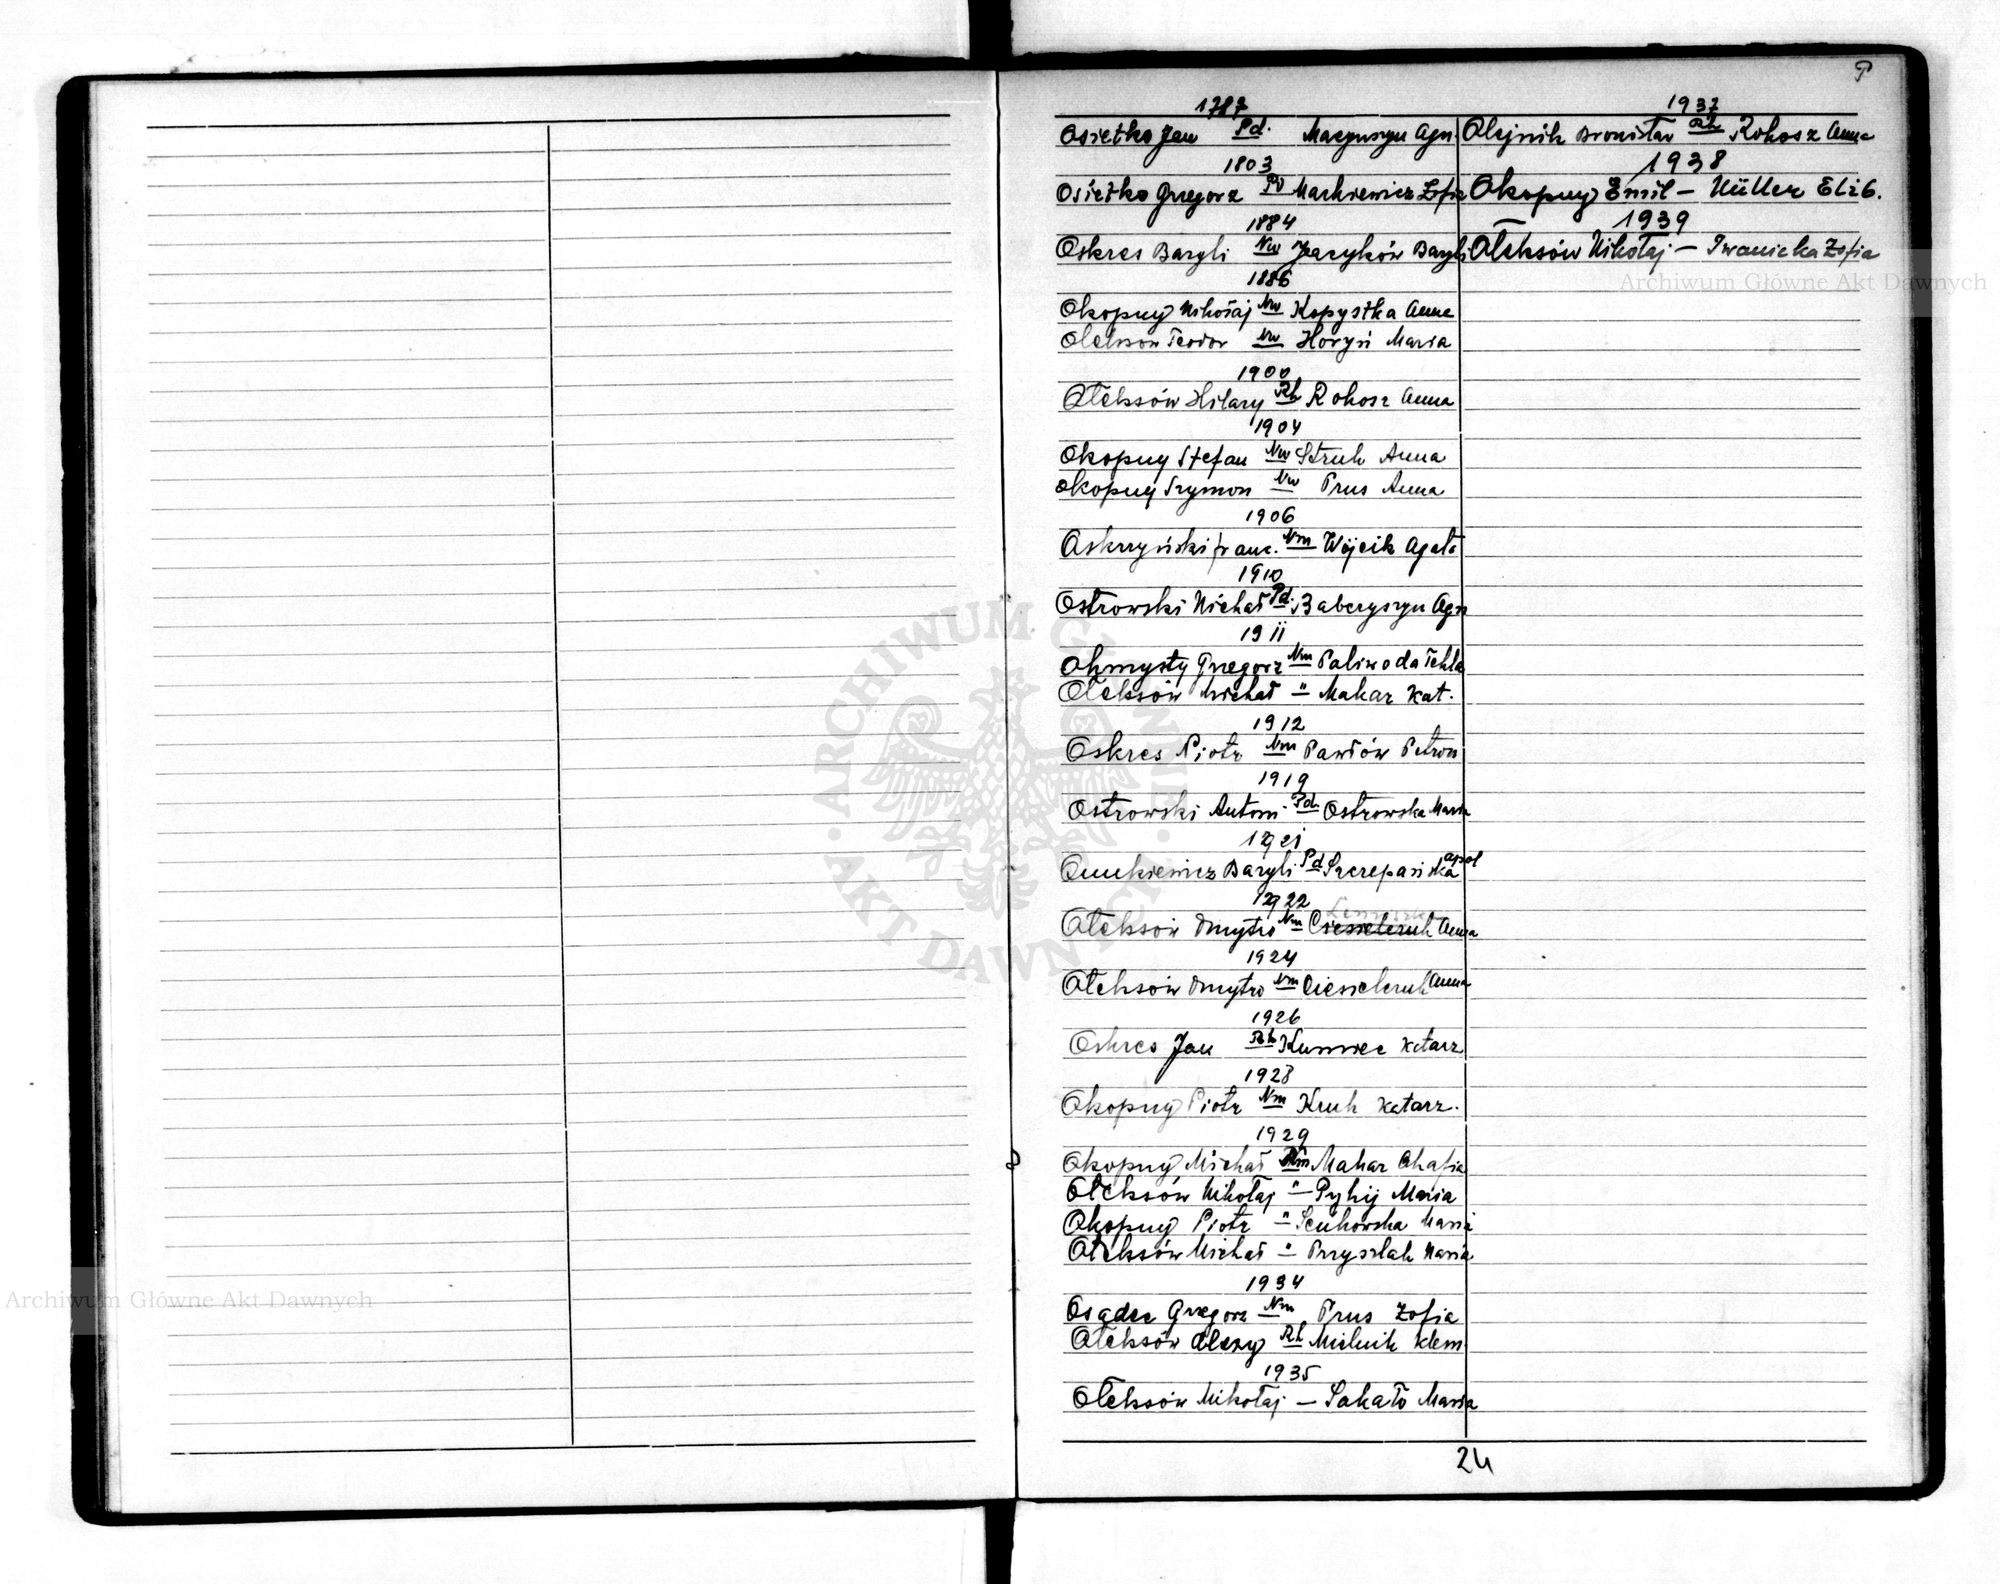 P
1787
Osiełko Jan Pd. Maczyszyn Agn.
1803
Osiełko Grzegorz Pd Markiewicz Zofia
1884
Oskres Bazyli Nw Jazyków Bazyli
1886
Okopnyj Mikołaj Nw Kopystka Anna
Olekson Teodor Nw Horyń Maria
1900
Ołeksów Hilary Rh Rokosz Anna
1904
Okopny Stefan Nw Struk Anna
Okopny Szymon Nw Prus Anna
1906
Oskrzyński Franc. Nm Wójcik Agata
1910
Ostrowski Michał Pd. Baberyszyn Agn
1911
Ohmysty Grzegorz Nm Paliwoda Tekla
Ołeksów Michał " Makar Kat.
1912
Oskres Piotr Nm Pawłów Petron
1919
Ostrowski Antoni Pd Ostrowska Maria
1921
Onukiewicz Bazyli Pd Szczepańska apol
1922
Ołeksów Dmytro Nm Ciesielczuk Anna
1924
Ołeksów Dmytro Nm Ciesielczuk Anna
1926
Oskres Jan Rh Kunowec Katarz
1928
Okopnyj Piotr Nm Kruk Katarz.
1929
Okopnyj Michał Nm Makar Ahafia
Ołeksów Mikołaj " Pyhij Maria
Okopnyj Piotr " Senkowska Maria
Ołeksów Michał " Przyszlak Maria
1934
Osadec Grzegorz Nm Prus Zofia
Ołeksów Olexy Rh Mielnik Klem
1935
Ołeksów Mikołaj — Sakało Maria
1937
Olejnik Bronisław Rh Rokosz Anna
1938
Okopnyj Emil — Müller Eliz.
1939
Ołeksów Mikołaj — Iwanicka Zofia
24
Archiwum Główne Akt Dawnych
Archiwum Główne Akt Dawnych
ARCHIWUM GŁÓWNE
AKT DAWNYCH